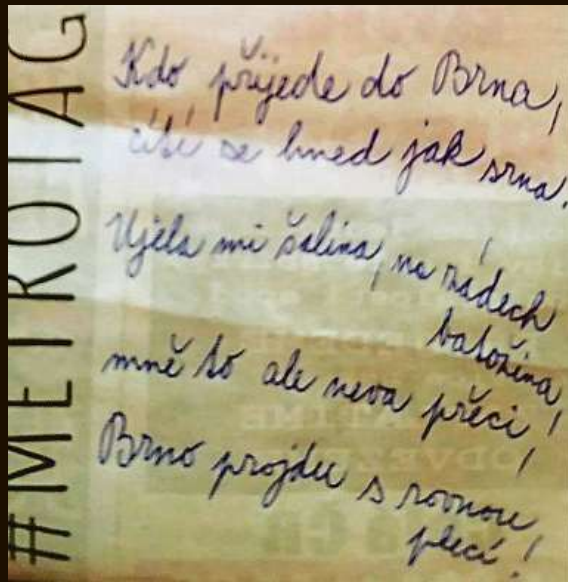 #METROTAG
Kdo přijede do Brna,
cítí se hned jak srna!
Ujela mi šalina, na zádech
batožina,
mně to ale neva přeci!
Brno projdu s rovnou
plecí!